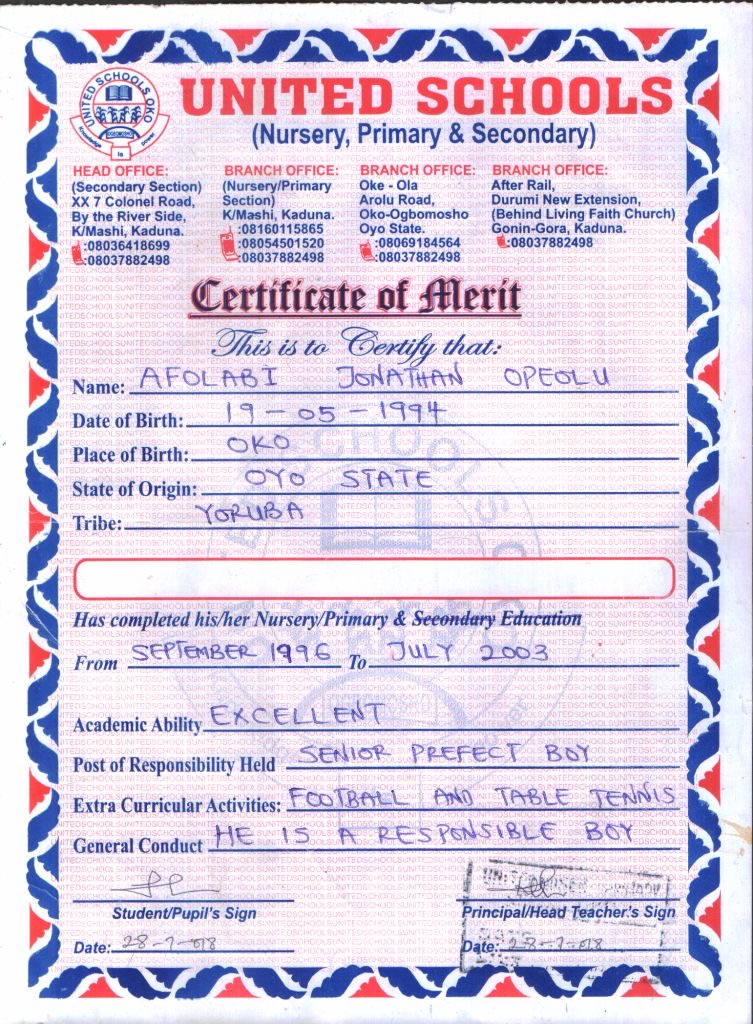 UNITED SCHOOLS OKO
Knowledge is Power
UNITED SCHOOLS
(Nursery, Primary & Secondary)
HEAD OFFICE:
(Secondary Section)
XX 7 Colonel Road,
By the River Side,
K/Mashi, Kaduna.
:08036418699
:08037882498
BRANCH OFFICE:
(Nursery/Primary
Section)
K/Mashi, Kaduna.
:08160115865
:08054501520
:08037882498
BRANCH OFFICE:
Oke - Ola
Arolu Road,
Oko-Ogbomosho
Oyo State.
:08069184564
:08037882498
BRANCH OFFICE:
After Rail,
Durumi New Extension,
(Behind Living Faith Church)
Gonin-Gora, Kaduna.
:08037882498
Certificate of Merit
This is to Certify that:
Name: AFOLABI JONATHAN OPEOLU
Date of Birth: 19-05-1994
Place of Birth: OKO
State of Origin: OYO STATE
Tribe: YORUBA
Has completed his/her Nursery/Primary & Secondary Education
From SEPTEMBER 1996 To JULY 2003
Academic Ability EXCELLENT
Post of Responsibility Held SENIOR PREFECT BOY
Extra Curricular Activities: FOOTBALL AND TABLE TENNIS
General Conduct HE IS A RESPONSIBLE BOY
Student/Pupil's Sign
Principal/Head Teacher's Sign
Date: 28-7-018
Date: 28-7-018